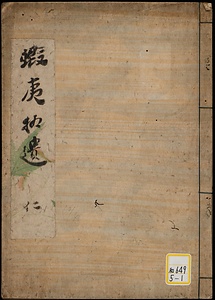 蝦夷拾遺
仁
和649
5-1